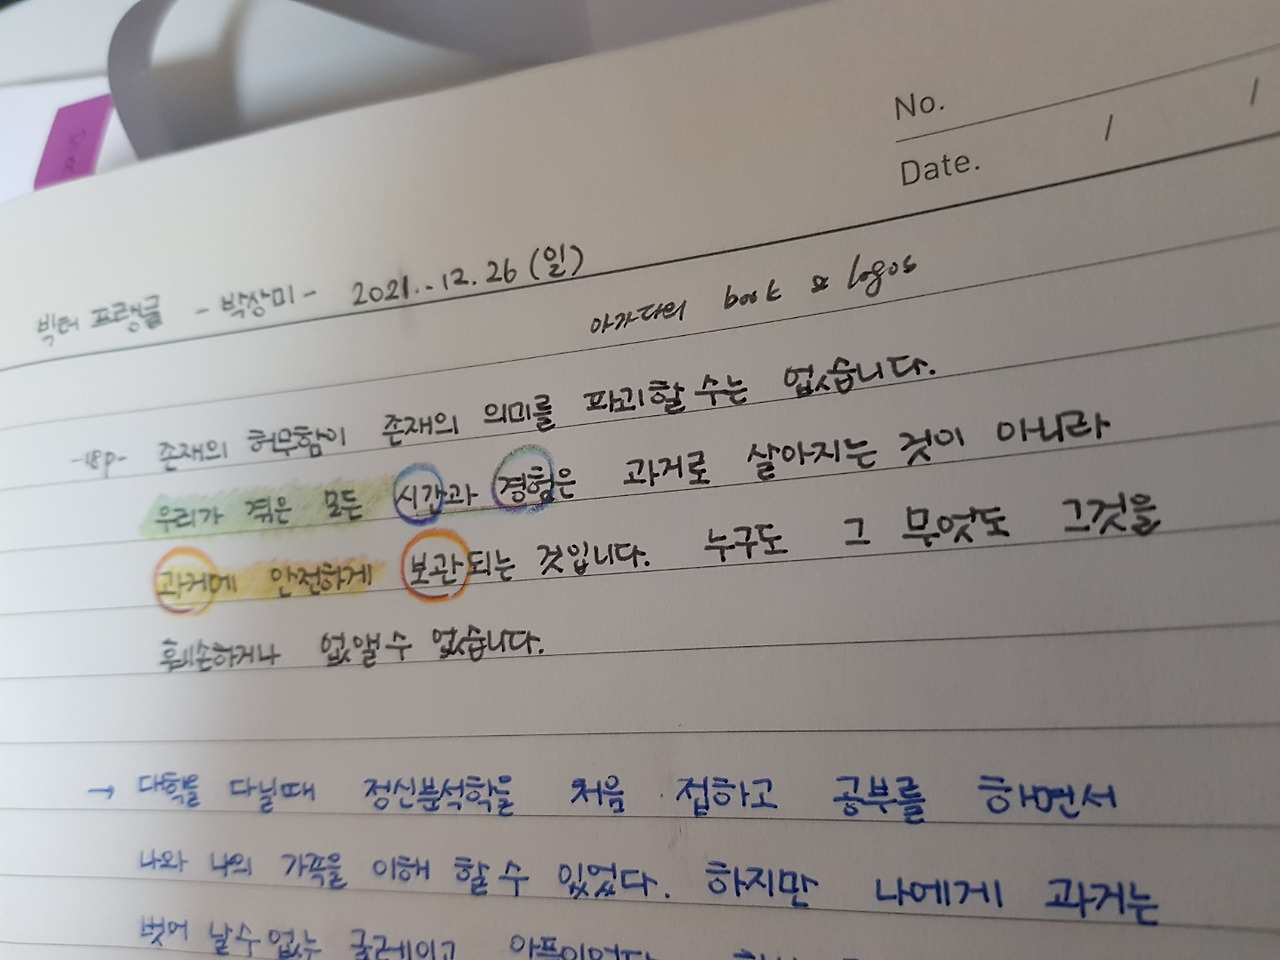 No.
Date. / /
빅터 프랭클 - 박상미 - 2021.12.26 (일)
아가다의 book & logos
-18p- 존재의 허무함이 존재의 의미를 파괴할 수는 없습니다.
우리가 겪은 모든 시간과 경험은 과거로 살아지는 것이 아니라
과거에 안전하게 보관되는 것입니다. 누구도 그 무엇도 그것을
훼손하거나 없앨 수 없습니다.
→ 대학을 다닐때 정신분석학을 처음 접하고 공부를 하면서
나와 나의 가족을 이해 할 수 있었다. 하지만 나에게 과거는
벗어 날 수 없는 굴레이고 아픔이었다.